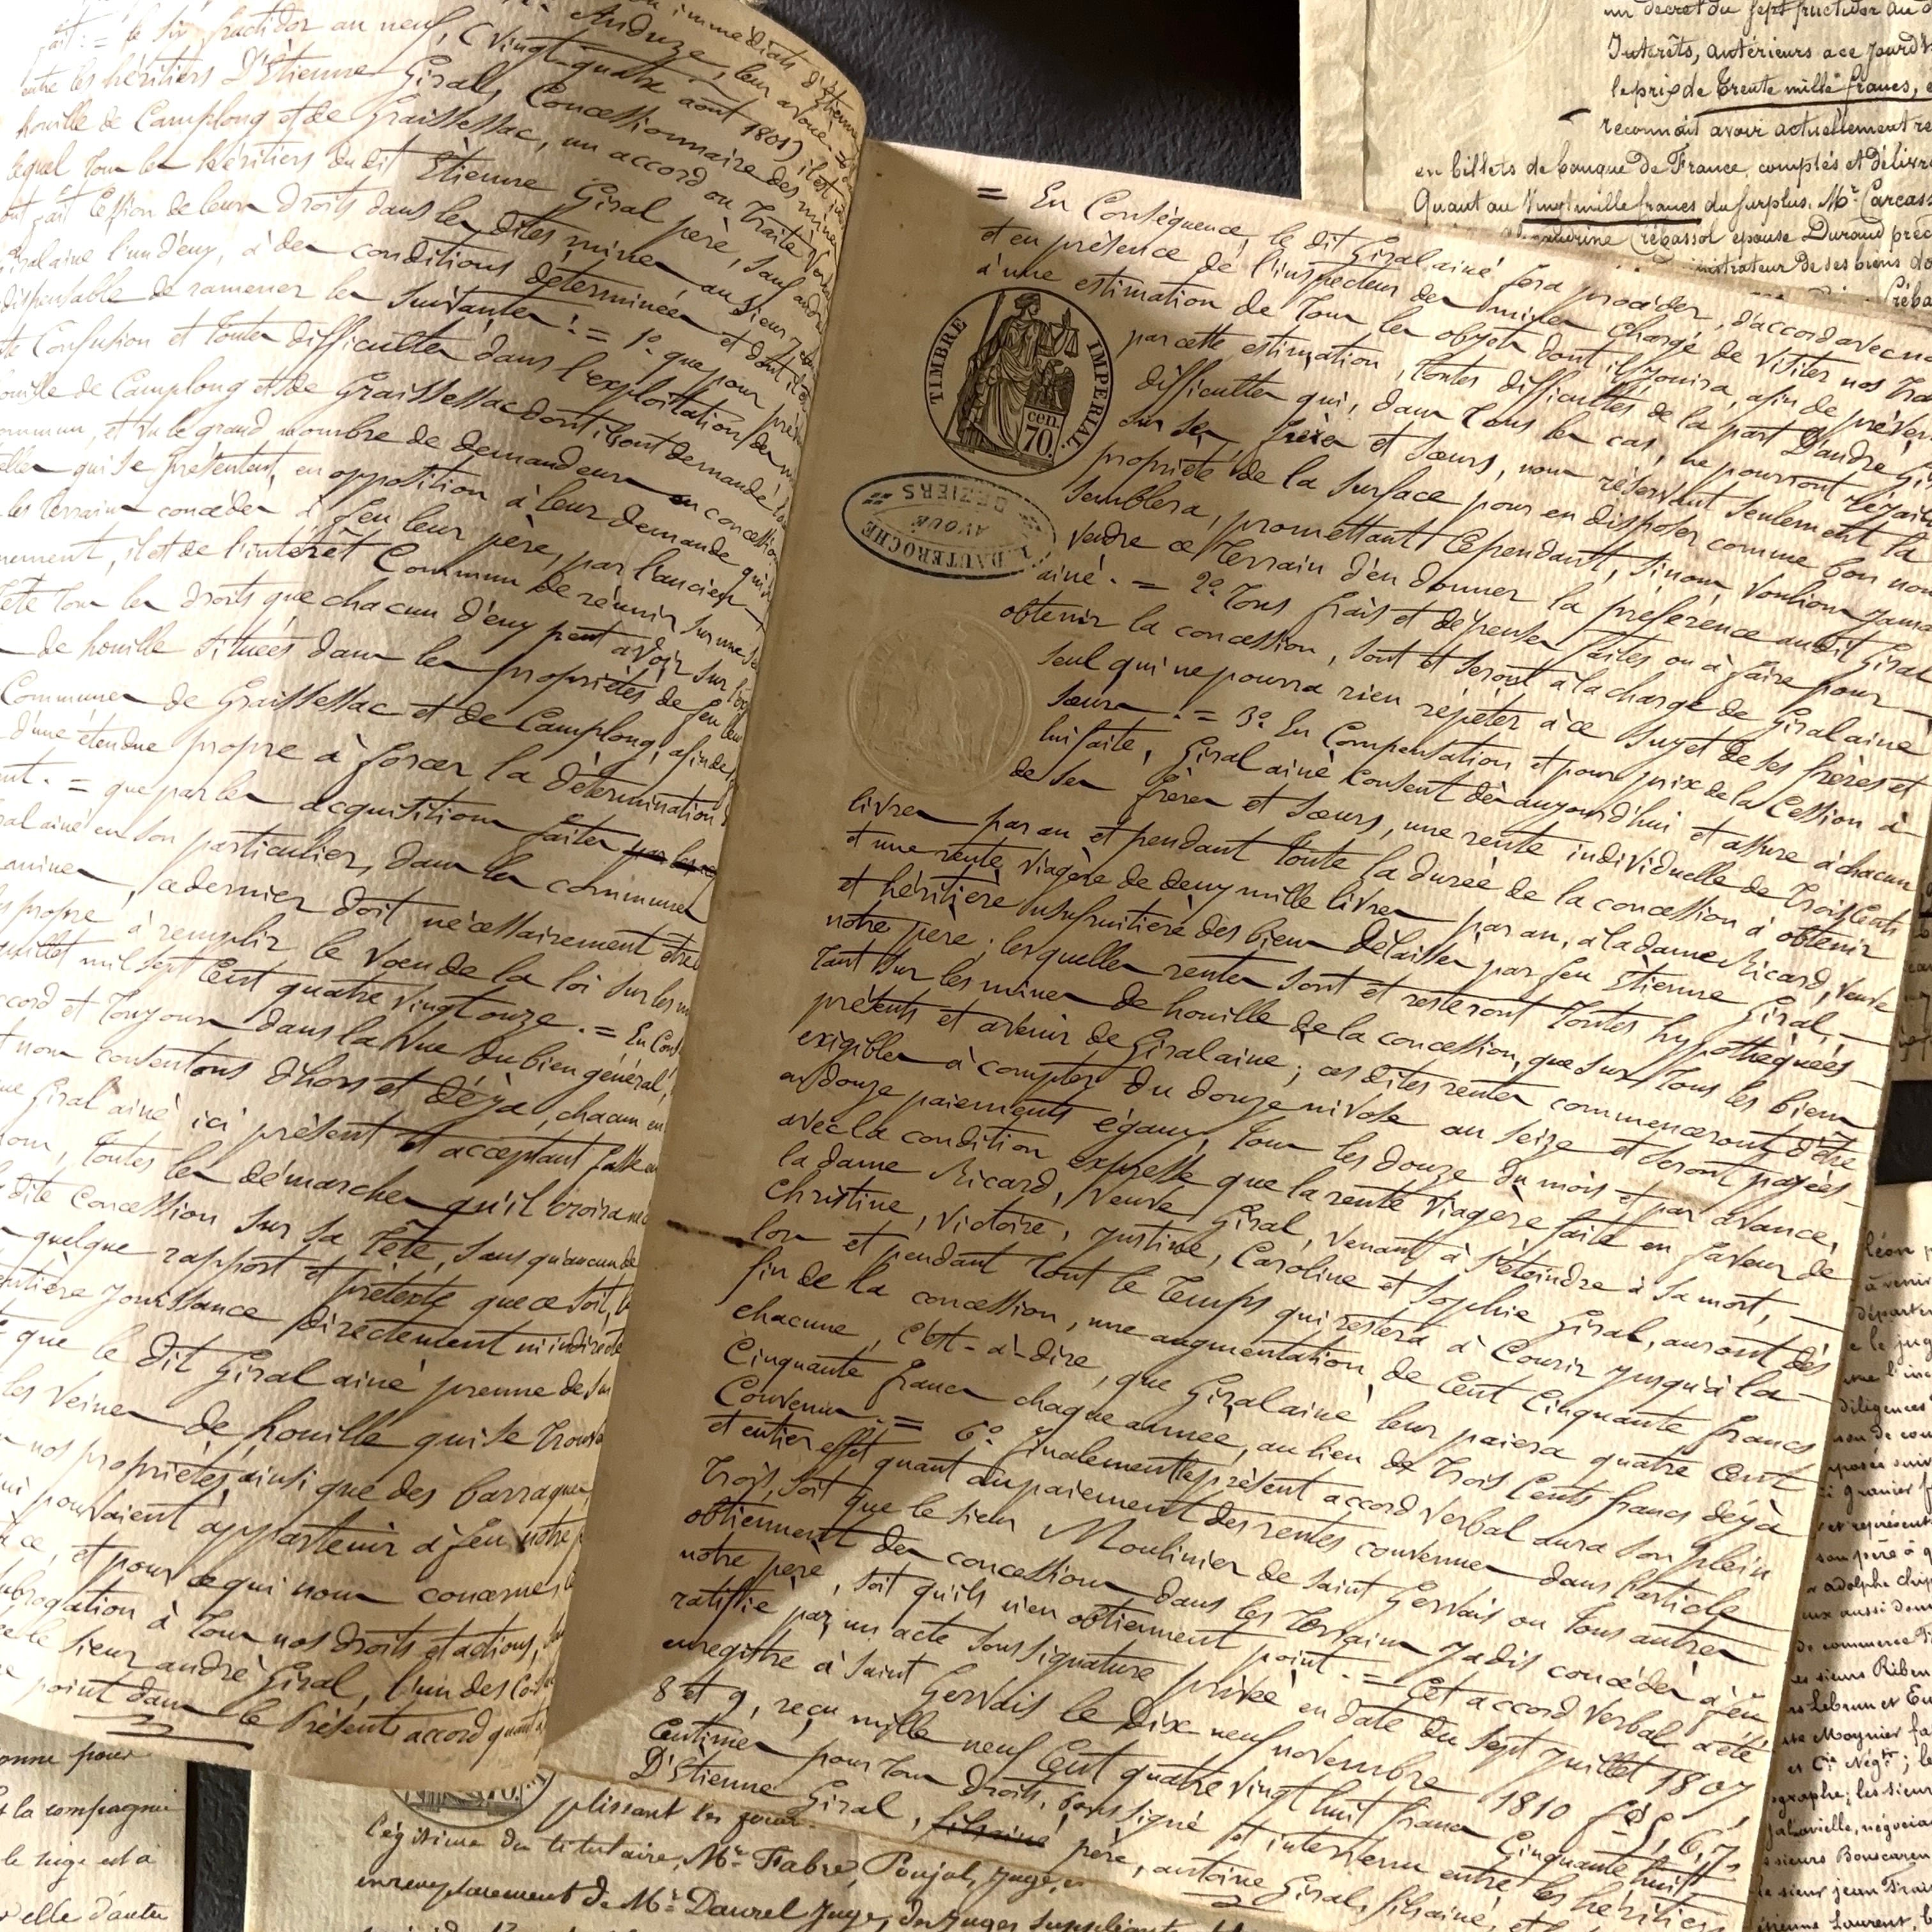 immédiats d'Étienne
Anduze, leur avoué
fait : = le six fructidor an neuf, (vingt-quatre août 1801) il est
entre les héritiers D'Étienne Giral, Concessionnaire des mines
houille de Camplong et de Graissessac, un accord ou traité
lequel tous les héritiers du dit Étienne Giral père, sauf andré
ont fait Cession de leurs droits dans les dites mines, au sieur
Giral ainé l'un d'eux, à des conditions déterminées et dont il
dispensable de ramener les suivantes : = 1º que pour
Confusion et toutes difficultés dans l'exploitation des
houille de Camplong et de Graissessac dont ils ont demandé
commun, et vu le grand nombre de demandeurs en concession
qui se présentent, en opposition à leur demande
les terrains concédés à feu leur père, par l'ancien
il est de l'intérêt Commun de réunir sur une
tête tous les droits que chacun d'eux peut avoir sur
de houille situées dans les propriétés de feu leur
Communes de Graissessac et de Camplong, afin de
d'une étendue propre à forcer la détermination
= que par les acquisitions faites par les
Giral ainé en son particulier, dans la commune
ce dernier doit nécessairement être
propre à remplir le voeu de la loi sur les
juillet mil sept Cent quatre vingt onze. = En
accord et toujours dans la vue du bien général,
nous consentons d'hors et déjà, chacun en
Giral ainé ici présent et acceptant fasse
toutes les démarches qu'il croira
dite concession sur sa tête, sans qu'aucun de
quelque rapport et prétexte que ce soit,
entière jouissance directement ni indirecte
que le dit Giral ainé prenne de
les veines de houille qui se trouve
nos propriétés, ainsi que des barraques
qui pourraient appartenir à feu notre
à ce, et pour ce qui nous concerne,
subrogation à tous nos droits et actions,
le sieur andré Giral, l'un des
point dans le Présent accord quant
= En Conséquence, le dit Giral ainé fera procéder, d'accord avec
et en présence de l'inspecteur des mines chargé de visiter nos
à une estimation de tous les objets dont il jouira, afin de préven
par cette estimation, toutes difficultés de la part D'andré
difficultés qui, dans tous les cas, ne pourront
sur ses frères et soeurs, nous réservant seulement la
propriété de la surface pour en disposer comme bon nous
semblera, promettant Cependant, si nous voulions
vendre ce terrain d'en donner la préférence au dit Giral
ainé. = 2º Tous frais et dépenses faites ou à faire pour
obtenir la concession, sont et seront à la charge de Giral ainé
seul qui ne pourra rien répéter à ce sujet de ses frères et
soeurs. = 3º En Compensation et pour prix de la Cession à
lui faite, Giral ainé Consent dès aujourd'hui et assure à chacun
de ses frères et soeurs, une rente individuelle de Trois Cents
livres par an et pendant toute la durée de la concession à obtenir
et une rente viagère de deux mille livres par an, à la dame Ricard, veuve
et héritière usufruitière des biens délaissés par feu Étienne Giral,
notre père ; lesquelles rentes sont et resteront toutes hypothéquées
tant sur les mines de houille de la concession, que sur tous les biens
présents et avenir de Giral ainé ; ces dites rentes commenceront d'être
exigibles à compter du douze nivose an seize et seront payées
en douze paiements égaux, tous les douze du mois et par avance,
avec la condition expresse que la rente viagère, faite en faveur de
la dame Ricard, veuve Giral, venant à s'éteindre à sa mort,
Christine, Victoire, Justine, Caroline et Sophie Giral, auront dès
lors et pendant tout le temps qui restera à Courir jusqu'à la
fin de la concession, une augmentation de Cent Cinquante francs
chacune, C'est-à-dire, que Giral ainé leur paiera quatre Cent
Cinquante francs chaque année, au lieu de trois Cents francs déjà
Convenus. = 6º finalement le présent accord verbal aura son plein
et entier effet quant au paiement des rentes convenues dans l'article
Trois, soit que le sieur Moulinier de Saint Gervais ou tous autres
obtiennent des concessions dans les terrains jadis concédés à feu
notre père, soit qu'ils n'en obtiennent point. = Cet accord verbal a été
ratifié par un acte sous signature privée en date du sept juillet 1807
enregistré à Saint Gervais le dix neuf novembre 1810 fº 5, 6, 7,
8 et 9, reçu mille neuf Cent quatre vingt huit francs Cinquante huit
Centimes pour tous droits, signé et intervenu entre les héritiers
D'Étienne Giral, fils ainé père, antoine Giral, fils ainé, et
TIMBRE IMPERIAL
70. cen.
L. DAUTEROCHE
AVOUÉ
BEZIERS
un décret du sept fructidor an
Intérêts, antérieurs a ce jourd'h
le prix de trente mille francs,
reconnait avoir actuellement re
en billets de banque De France, comptés et délivr
Quant au vingt mille francs du surplus, Mr. Carcass
Crébassol épouse Durand préc
administrateur de ses biens do
la compagnie
le siège est à
elle d'autre
70.
plissant les fonc
légitime du titulaire, Mr. Fabre, Poujol, juge, e
en remplacement de Mr. Daurel juge, des juges suppléants
à venir
départem
diligences
granier
et représent
son père à
adolphe
aussi
de commerce
les sieurs Riben
Lebrun et Eu
Moynier fa
et Cie Négts ; le
les sieur
négocia
sieurs Bouscaren
le sieur jean Frais
étienne Laurent